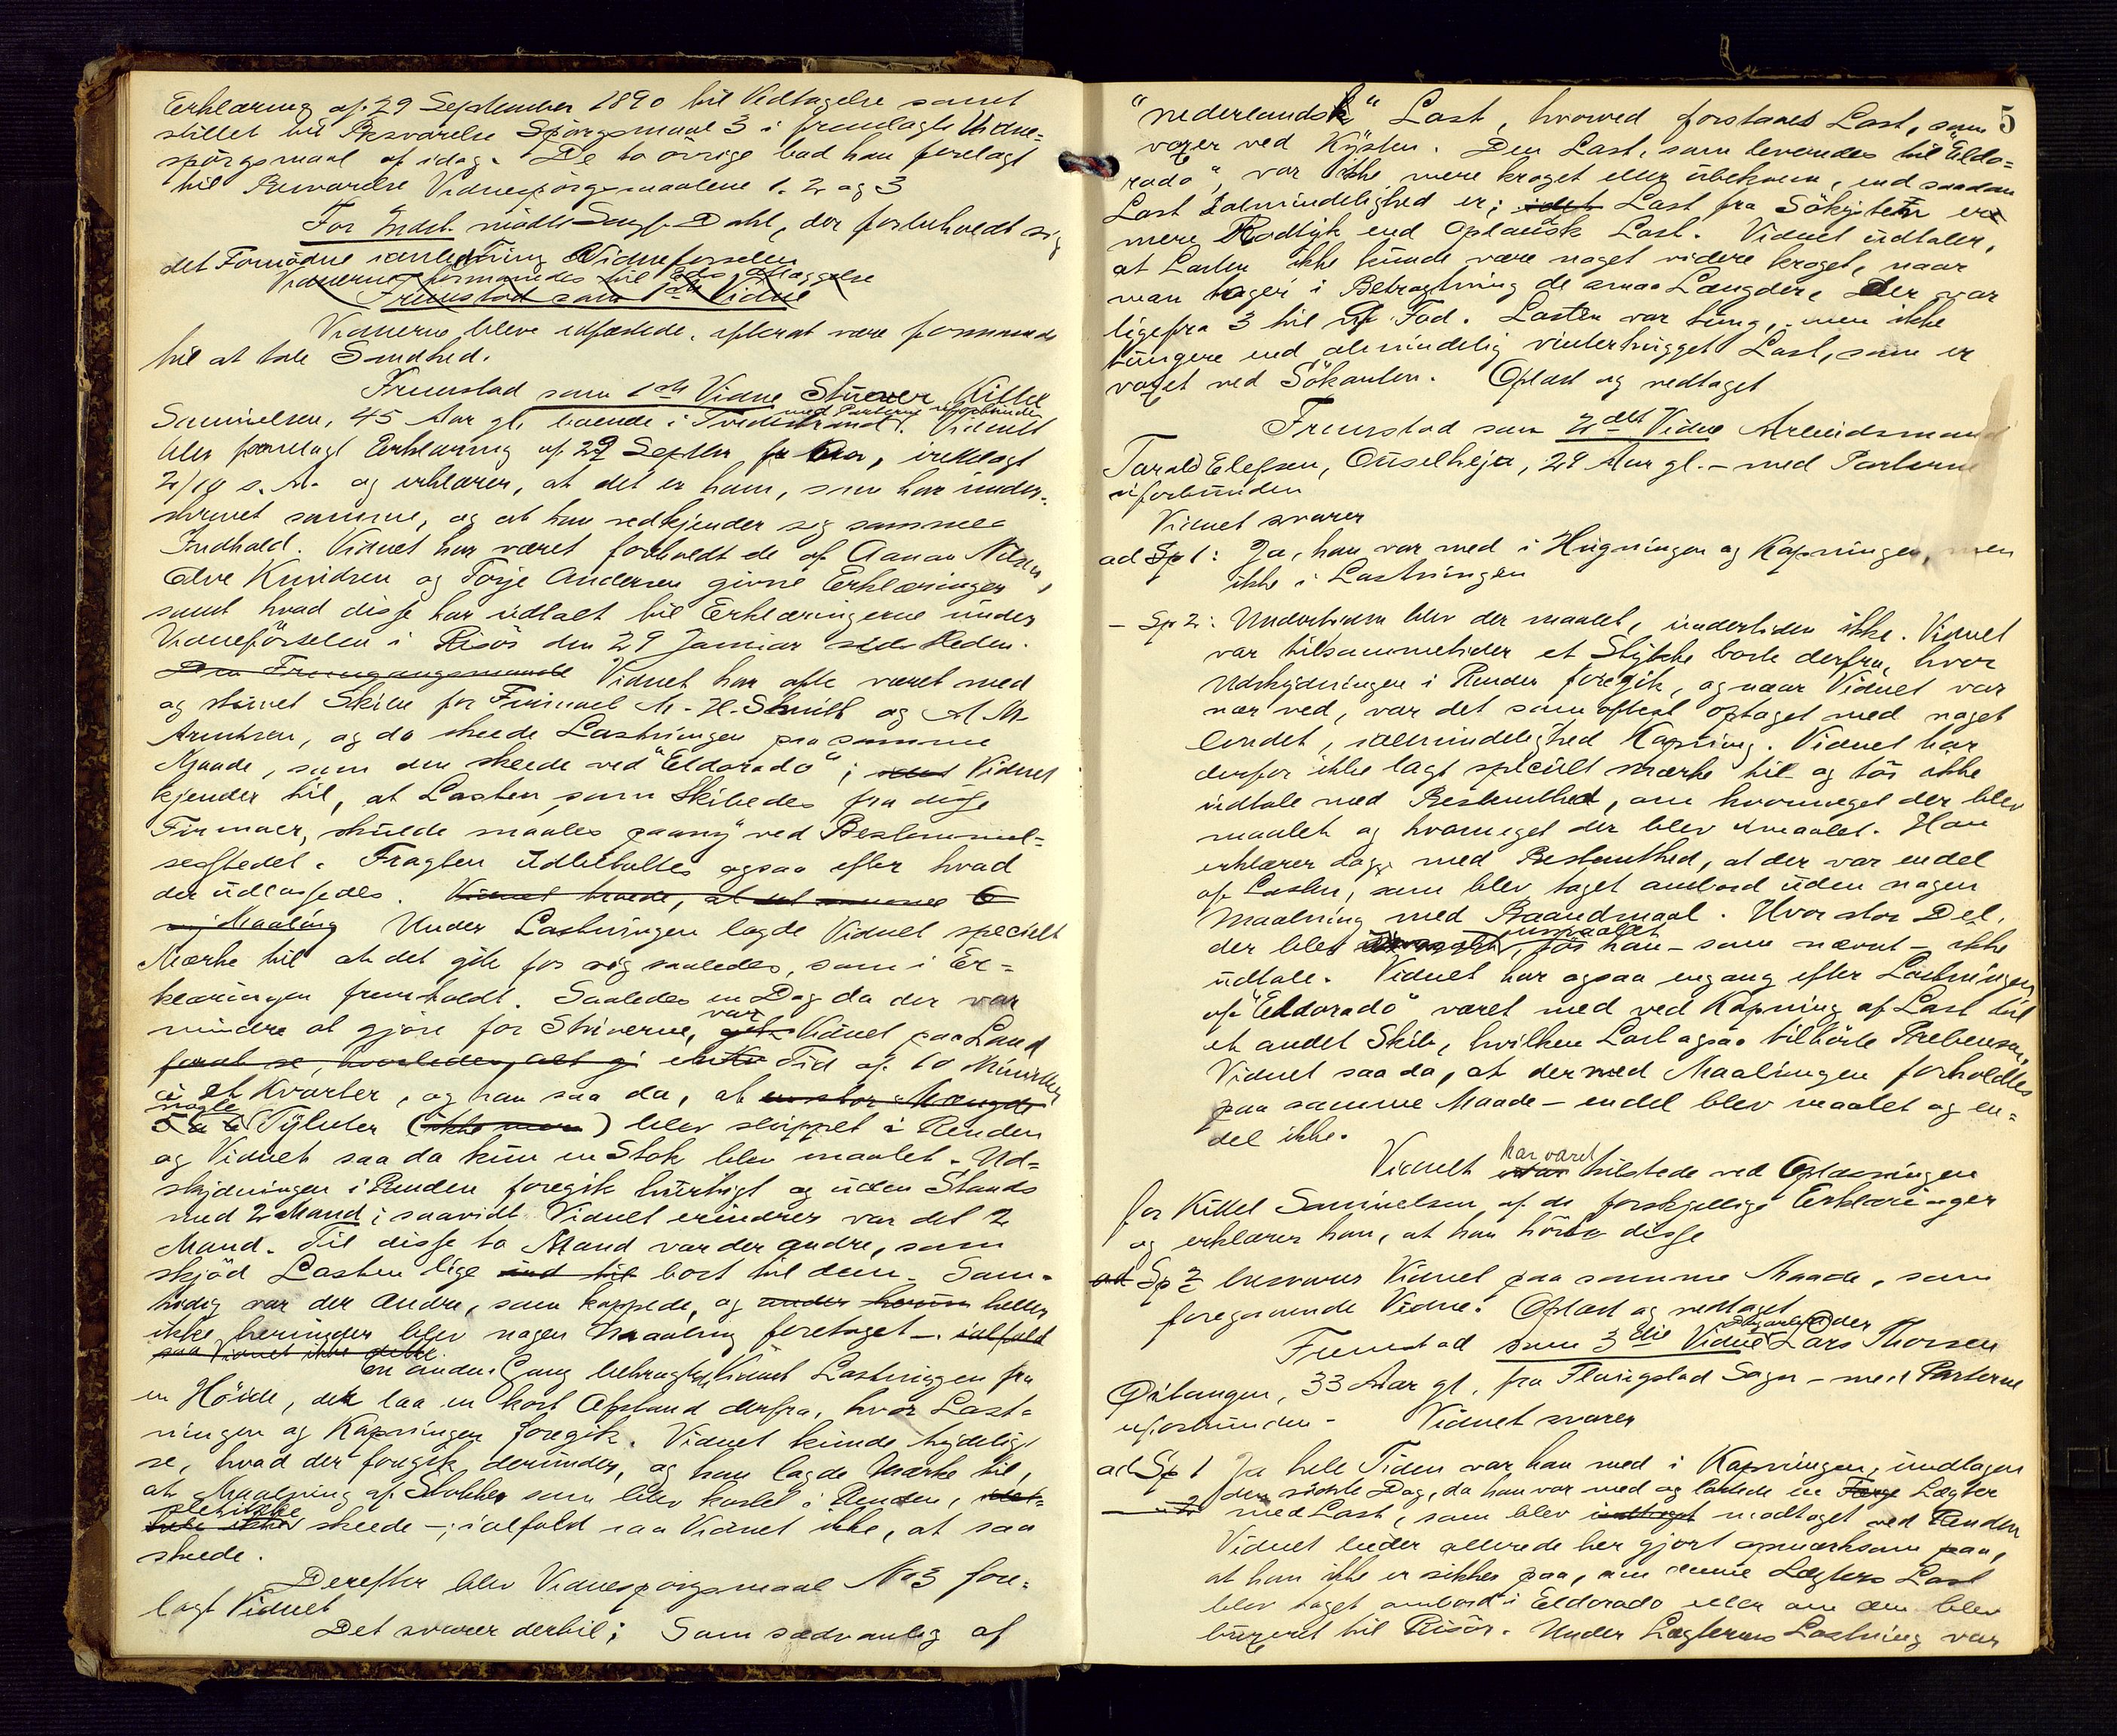 Erklæring af 29 September 1890 til Vedtagelse samt
stillet til Besvarelse Spörgsmaal 3 i fremlagte Vidne-
spörgsmaal af idag. De to övrige bad han forelagt
til Besvarelse Vidnespörgsmaalene 1. 2 og 3
For Indst. mödte Sagf. Dahl, der forbeholdt sig
det Fornödne ianledning Vidneforselen
Vidnerne formanedes til Eds aflæggelse
Fremstod som 1ste Vidne
Vidnerne bleve edfæstede, efterat være formanede
til at tale Sandhed.
Fremstod som 1ste Vidne Stuer Kittel
med Parterne uforbunden
Samuelsen, 45 Aar gl, boende i Tvedestrand. Vidnet
blev forelagt Erklæring af 29 Septbr f Aar, irettelagt
2/10 s. A. og erklærer, at det er ham, som har under-
skrevet samme, og at han vedkjender sig sammes
Indhold. Vidnet har været foreholdt de af Aanon Nilsen,
Alve Knudsen og Torje Andersen givne Erklæringer,
samt hvad disse har udtalt til Erklæringerne under
Vidneförselen i Risör den 29 Januar sidstleden.
Den Fremgangsmaade Vidnet har ofte været med
og stuet Skibe for Firmaet M. H. Smith og A M
Arentsen, og da skede Lastningen paa samme
Maade, som den skeede ved "Eldorado"; idet Vidnet
kjender til, at Lasten som skibedes fra disse
Firmaer, skulde maales paany ved Bestemmel-
sesstedet. Fragten udbetaltes ogsaa efter hvad
der udlossedes. Vidnet troede, at det samme
ny Maaling Under Lastningen lagde Vidnet specielt
Mærke til at det gik for sig saaledes, som i Er-
klæringen fremholdt. Saaledes en Dag da der var
mindre at gjöre for Stuerne, gik var Vidnet paa Land
forat se, hvorledes alt gi en Tid af 10 Minutter
à et Kvarter, og han saa da, at en stor Mængde
nogle
5 a 6 Tylvter (ikke mere) blev skippet i Renden
og Vidnet saa da kun en Stok blev maalet. Ud-
skydningen i Renden foregik hurtigt og uden Stands
med 2 Mand; saavidt Vidnet erindrer var det 2
Mand. Til disse to Mand var der andre, som
skjöd Lasten lige ind til bort til dem. Sam-
tidig var der Andre, som kappede, og heller
ikke herunder blev nogen Maaling foretaget — ialfald
saa Vidnet ikke dette.
En anden Gang betragtede Vidnet Lastningen fra
en Höide, der laa en kort Afstand derfra, hvor Last-
ningen og Kapningen foregik. Vidnet kunde tydelig
se, hvad der foregik derunder, og han lagde Mærke til,
at Maalning af Stokker som blev kastet i Renden,
slet ikke
skeede —; ialfald saa Vidnet ikke, at saa
skeede.
Derefter blev Vidnespörgsmaal No 3 fore-
lagt Vidnet
Det svarer dertil; Som sædvanlig af
5
"nederlandsk" Last, hvorved forstaaes Last, som
voxer ved Kysten. Den Last, som levendes til "Eldo-
rado", var ikke mere kroget eller ubekvem, end saadan
Last ialmindelighed er; idet Last fra Sökysten er
mere Rodtyk end Oplandsk Last. Vidnet udtaler,
at Lasten ikke kunde være noget videre kroget, naar
man tager i Betragtning de smaa Længder, der var
ligefra 3 til Fod. Lasten var tung, men ikke
tungere end almindelig vinterhugget Last, som er
voxet ved Sökanten. Oplæst og vedtaget
Fremstod som 2det Vidne Arbeidsmand
Tarald Elefsen, Ouselheja, 29 Aar gl. – med Parterne
uforbunden
Vidnet svarer
ad Sp 1: Ja, han var med i Hugningen og Kapningen, men
ikke i Lastningen
– Sp 2: Undertiden blev der maalet, undertiden ikke. Vidnet
var tilsammetider et Stykke borte derfra, hvor
Udskydningen i Renden foregik, og naar Vidnet var
nær ved, var det som oftest optaget med noget
andet, ialmindelighed Kapning. Vidnet har
derfor ikke lagt specielt Mærke til og tör ikke
udtale med Bestemthed, om hvormeget der blev
maalet og hvormeget der blev umaalet. Han
erklærer dog med Bestemthed, at der var endel
af Lasten, som blev taget ombord uden nogen
Maalning med Baandmaal. Hvor stor Del,
umaalet
der blev, tör han – som nævnt – ikke
udtale. Vidnet har ogsaa engang efter Lastningen
af "Eldorado" været med ved Kapning af Last til
et andet Skib, hvilken Last ogsaa tilhörte Prebensen.
Vidnet saa da, at der med Maalingen forholdtes
paa samme Maade – endel blev maalet og en-
del ikke.
Vidnet var har været tilstede ved Oplæsningen
for Kittel Samuelsen af de forskjellige Erklæringer
og erklærer han, at han hörte disse
ad Sp 3 besvarer Vidnet paa samme Maade, som
foregaaende Vidne. Oplæst og vedtaget
Fremstod som 3die Vidne Lars Thorsen
Östangen, 33 Aar gl, fra Flosta Sogn – med Parterne
uforbunden – Vidnet svarer
ad Sp 1 Ja hele Tiden var han med i Kapningen, undtagen
den sidste Dag, da han var med og lastede en Færge Lægter
— 2 med Last, som blev modtaget ved Renden
Vidnet beder allerede her gjort opmærksom paa,
at han ikke er sikker paa, om denne Lægters Last
blev taget ombord i Eldorado eller om den blev
buxeret til Risör. Under Lægterens Lastning var